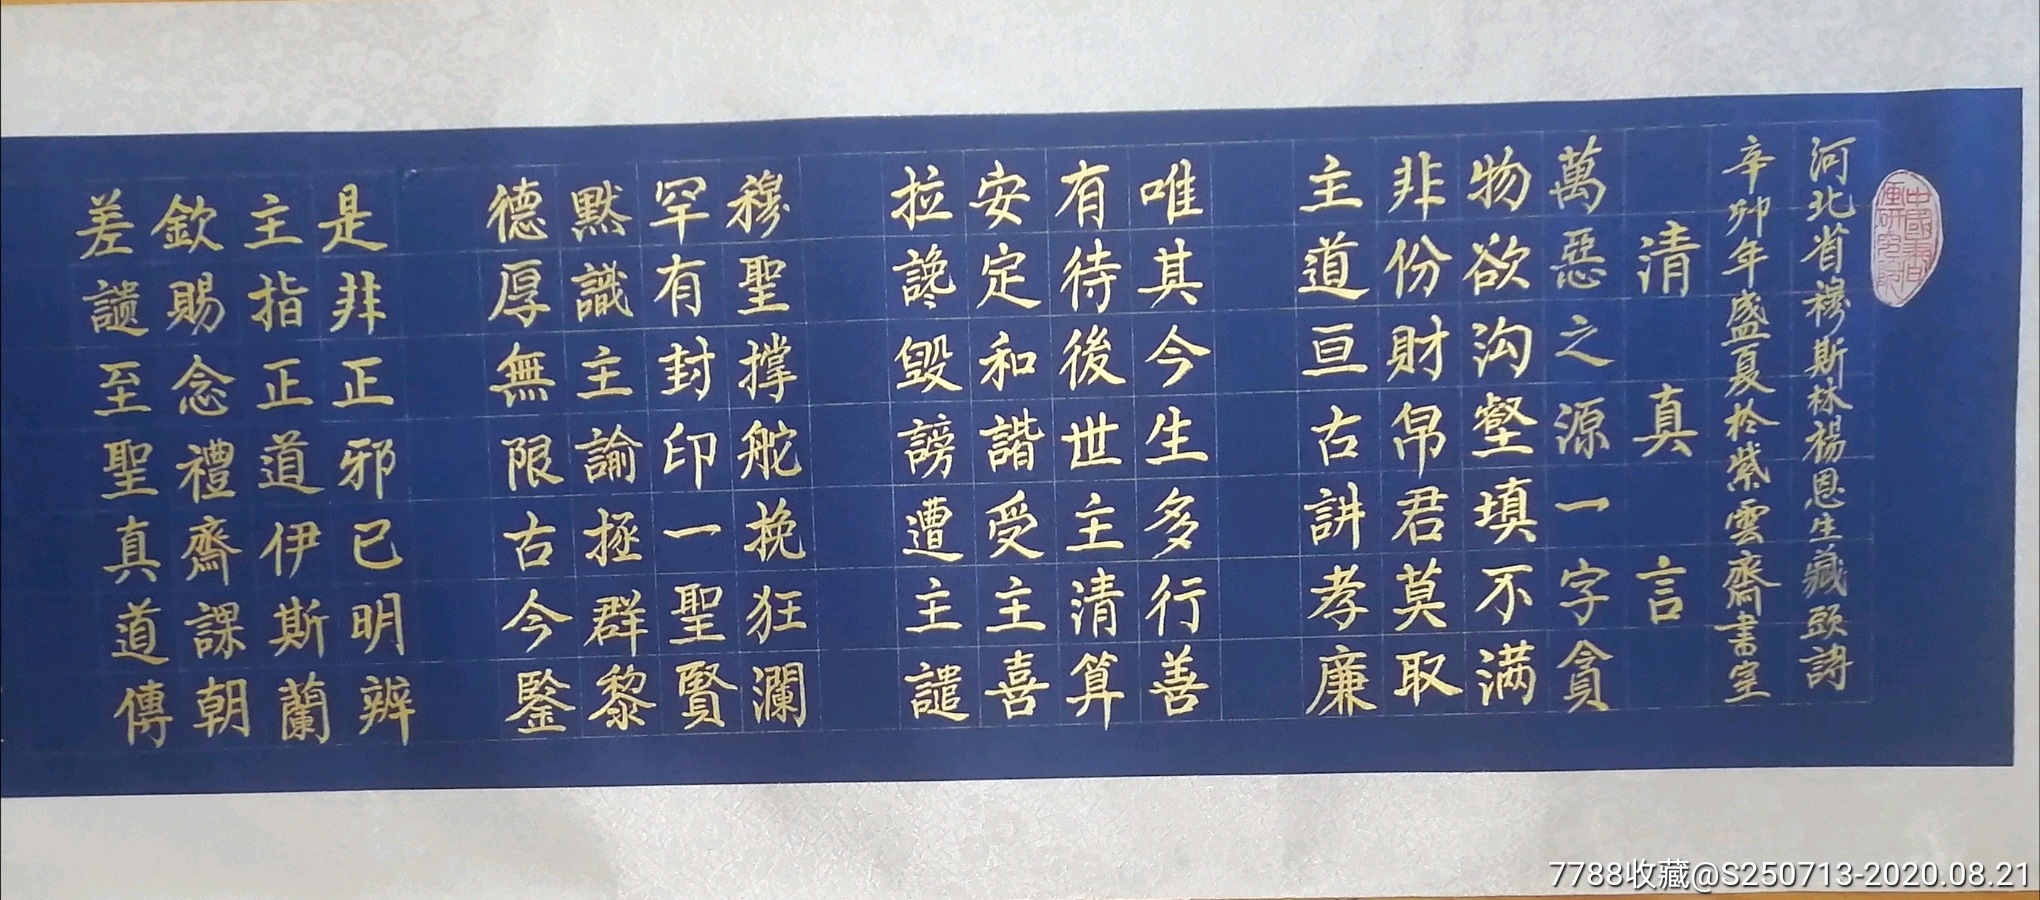 河北省穆斯林楊恩生藏頭詩
辛卯年盛夏於紫雲齋書室
清真言
萬惡之源一字貪
物欲沟壑填不满
非份財帛君莫取
主道亘古講孝廉
唯其今生多行善
有待後世主清算
安定和諧受主喜
拉讒毀謗遭主譴
穆聖撑舵挽狂瀾
罕有封印一聖賢
默識主諭拯群黎
德厚無限古今鑒
是非正邪已明辨
主指正道伊斯蘭
欽賜念禮齋課朝
差譴至聖真道傳
7788收藏@S250713-2020.08.21